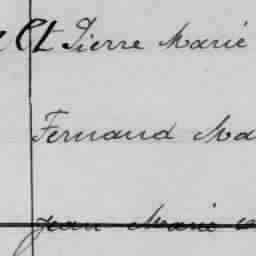 et Pierre Marie
Fernand Ma
Jean Marie